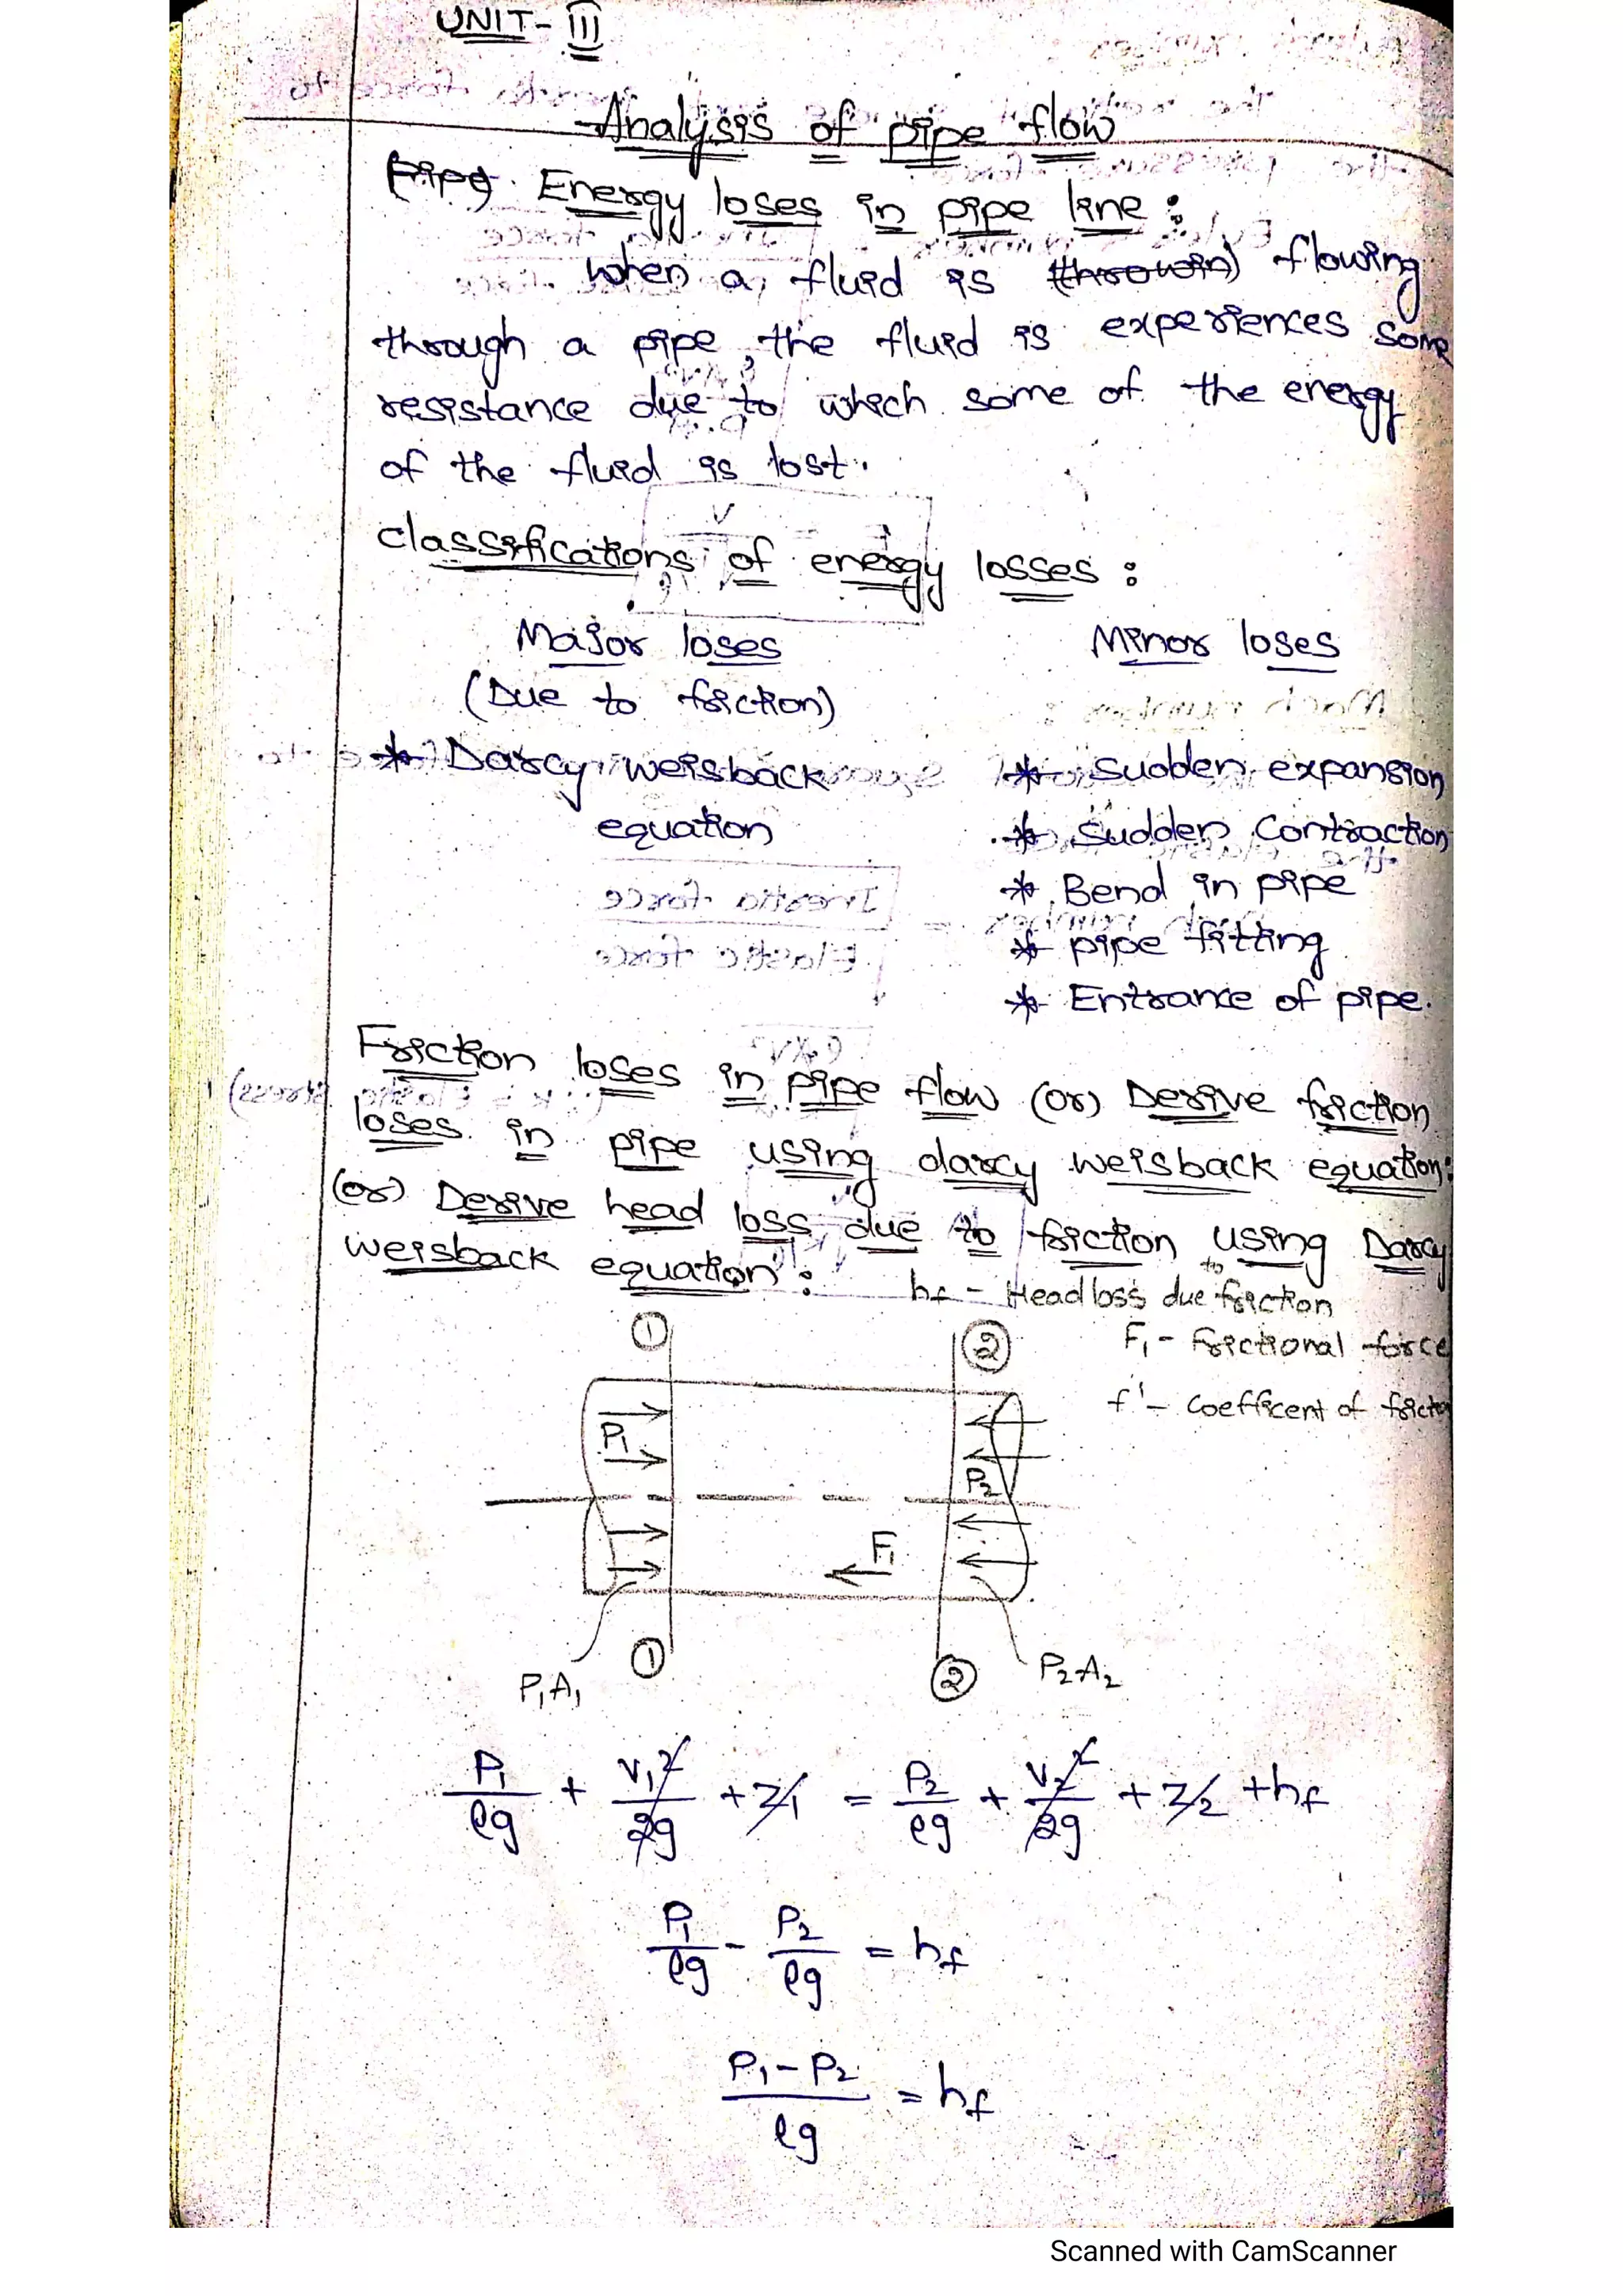 UNIT - III
Analysis of pipe flow
Pipe Energy loses in pipe line :
when a fluid is flowing
through a pipe, the fluid is experiences some
resistance due to which some of the energy
of the fluid is lost.
classifications of energy losses :
Major loses Minor loses
(Due to friction)
* Darcy weisback * Sudden expansion
equation * Sudden Contraction
* Bend in pipe
* pipe fitting
* Entrance of pipe.
Friction loses in pipe flow (or) Derive friction
loses in pipe using darcy weisback equation:
(or) Derive head loss due to friction using Darcy
weisback equation :
hf - Head loss due to friction
F1 - Frictional force
f' - Coefficent of friction
① ②
P1 P2
F1
① ②
P1A1 P2A2
P1/ρg + V1²/2g + Z1 = P2/ρg + V2²/2g + Z2 + hf
P1/ρg - P2/ρg = hf
P1 - P2/ρg = hf
Scanned with CamScanner